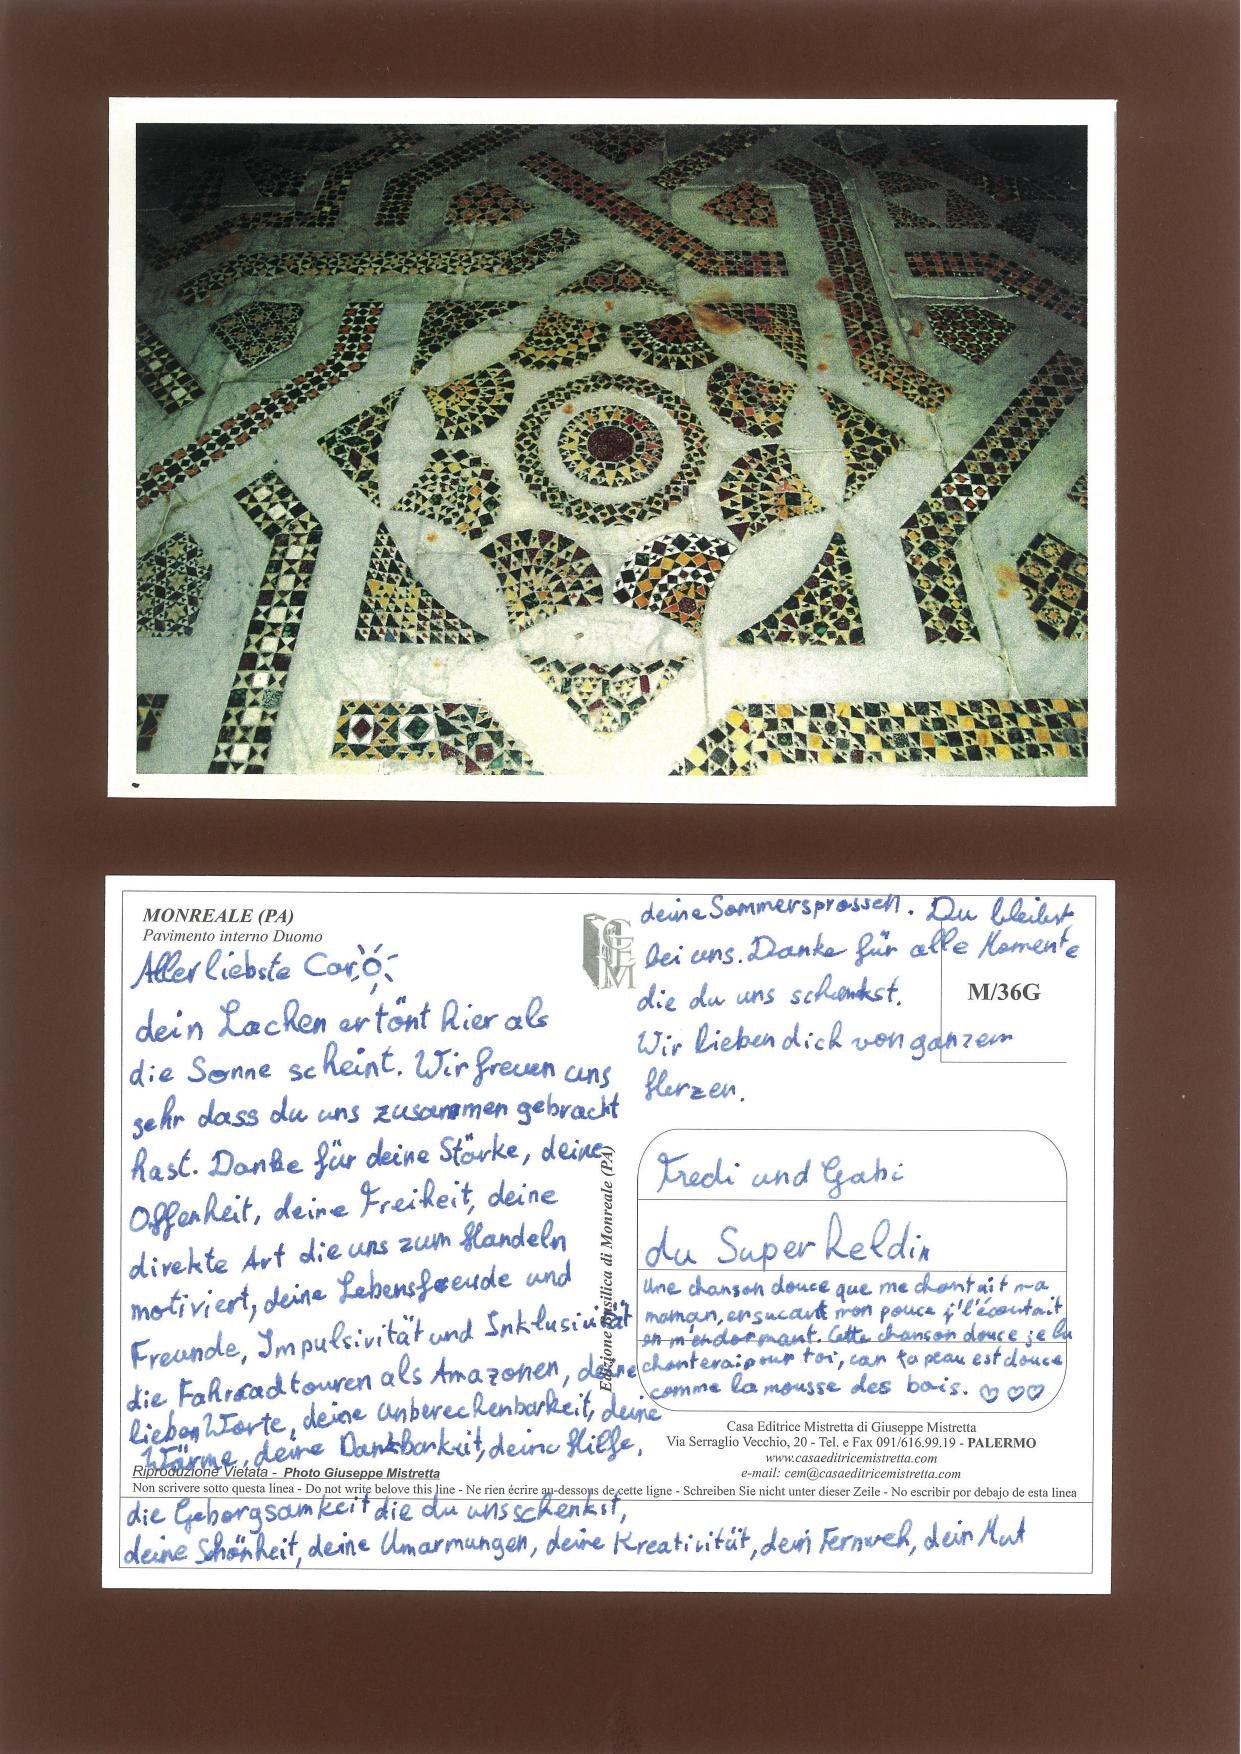 MONREALE (PA)
Pavimento interno Duomo
Allerliebste Caro
dein Lachen ertönt hier als
die Sonne scheint. Wir freuen uns
sehr dass du uns zusammen gebracht
hast. Danke für deine Stärke, deine
Offenheit, deine Freiheit, deine
direkte Art die uns zum Handeln
motiviert, deine Lebensfreude und
Freunde, Impulsivität und Inklusivität
die Fahrradtouren als Amazonen, deine
lieben Worte, deine Unberechenbarkeit, deine
Wärme, deine Dankbarkeit, deine Hilfe,
die Geborgsamkeit die du uns schenkst,
deine Schönheit, deine Umarmungen, deine Kreativität, dein Fernweh, dein Mut
deine Sommersprossen. Du bleibst
bei uns. Danke für alle Momente
die du uns schenkst.
Wir lieben dich von ganzem
Herzen.
CEM
M/36G
Edizione Basilica di Monreale (PA)
Fredi und Gabi
du Superheldin
Une chanson douce que me chantait ma
maman, en suçant mon pouce j'l'écoutait
en m'endormant. Cette chanson douce je la
chanterai pour toi, car ta peau est douce
comme la mousse des bois.
Casa Editrice Mistretta di Giuseppe Mistretta
Via Serraglio Vecchio, 20 - Tel. e Fax 091/616.99.19 - PALERMO
www.casaeditricemistretta.com
e-mail: cem@casaeditricemistretta.com
Riproduzione Vietata - Photo Giuseppe Mistretta
Non scrivere sotto questa linea - Do not write belove this line - Ne rien écrire au-dessous de cette ligne - Schreiben Sie nicht unter dieser Zeile - No escribir por debajo de esta linea